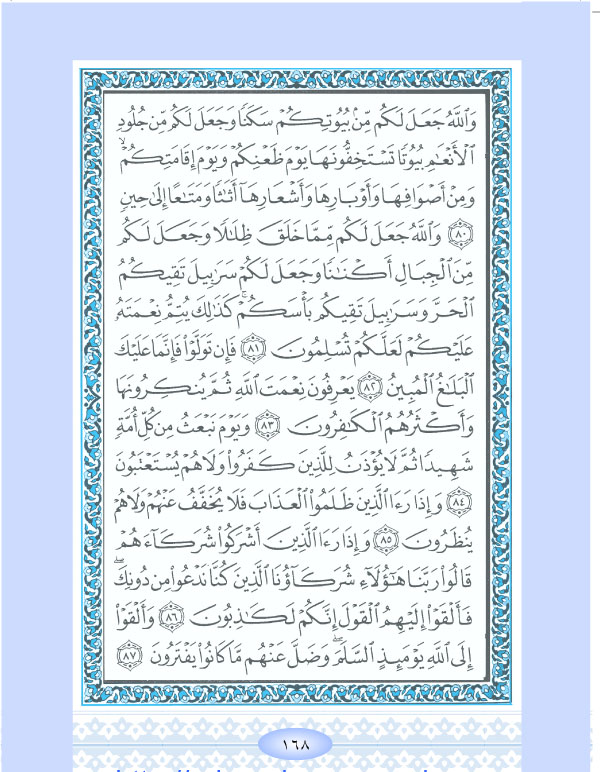 وَٱللَّهُ جَعَلَ لَكُم مِّنۢ بُيُوتِكُمْ سَكَنًا وَجَعَلَ لَكُم مِّن جُلُودِ
ٱلْأَنْعَٰمِ بُيُوتًا تَسْتَخِفُّونَهَا يَوْمَ ظَعْنِكُمْ وَيَوْمَ إِقَامَتِكُمْ ۙ
وَمِنْ أَصْوَافِهَا وَأَوْبَارِهَا وَأَشْعَارِهَآ أَثَٰثًا وَمَتَٰعًا إِلَىٰ حِينٍ
٨٠ وَٱللَّهُ جَعَلَ لَكُم مِّمَّا خَلَقَ ظِلَٰلًا وَجَعَلَ لَكُم
مِّنَ ٱلْجِبَالِ أَكْنَٰنًا وَجَعَلَ لَكُمْ سَرَٰبِيلَ تَقِيكُمُ
ٱلْحَرَّ وَسَرَٰبِيلَ تَقِيكُم بَأْسَكُمْ ۚ كَذَٰلِكَ يُتِمُّ نِعْمَتَهُۥ
عَلَيْكُمْ لَعَلَّكُمْ تُسْلِمُونَ ٨١ فَإِن تَوَلَّوْا۟ فَإِنَّمَا عَلَيْكَ
ٱلْبَلَٰغُ ٱلْمُبِينُ ٨٢ يَعْرِفُونَ نِعْمَتَ ٱللَّهِ ثُمَّ يُنكِرُونَهَا
وَأَكْثَرُهُمُ ٱلْكَٰفِرُونَ ٨٣ وَيَوْمَ نَبْعَثُ مِن كُلِّ أُمَّةٍ
شَهِيدًا ثُمَّ لَا يُؤْذَنُ لِلَّذِينَ كَفَرُوا۟ وَلَا هُمْ يُسْتَعْتَبُونَ
٨٤ وَإِذَا رَءَا ٱلَّذِينَ ظَلَمُوا۟ ٱلْعَذَابَ فَلَا يُخَفَّفُ عَنْهُمْ وَلَا هُمْ
يُنظَرُونَ ٨٥ وَإِذَا رَءَا ٱلَّذِينَ أَشْرَكُوا۟ شُرَكَآءَهُمْ
قَالُوا۟ رَبَّنَا هَٰٓؤُلَآءِ شُرَكَآؤُنَا ٱلَّذِينَ كُنَّا نَدْعُوا۟ مِن دُونِكَ ۖ
فَأَلْقَوْا۟ إِلَيْهِمُ ٱلْقَوْلَ إِنَّكُمْ لَكَٰذِبُونَ ٨٦ وَأَلْقَوْا۟
إِلَى ٱللَّهِ يَوْمَئِذٍ ٱلسَّلَمَ ۖ وَضَلَّ عَنْهُم مَّا كَانُوا۟ يَفْتَرُونَ ٨٧
١٦٨